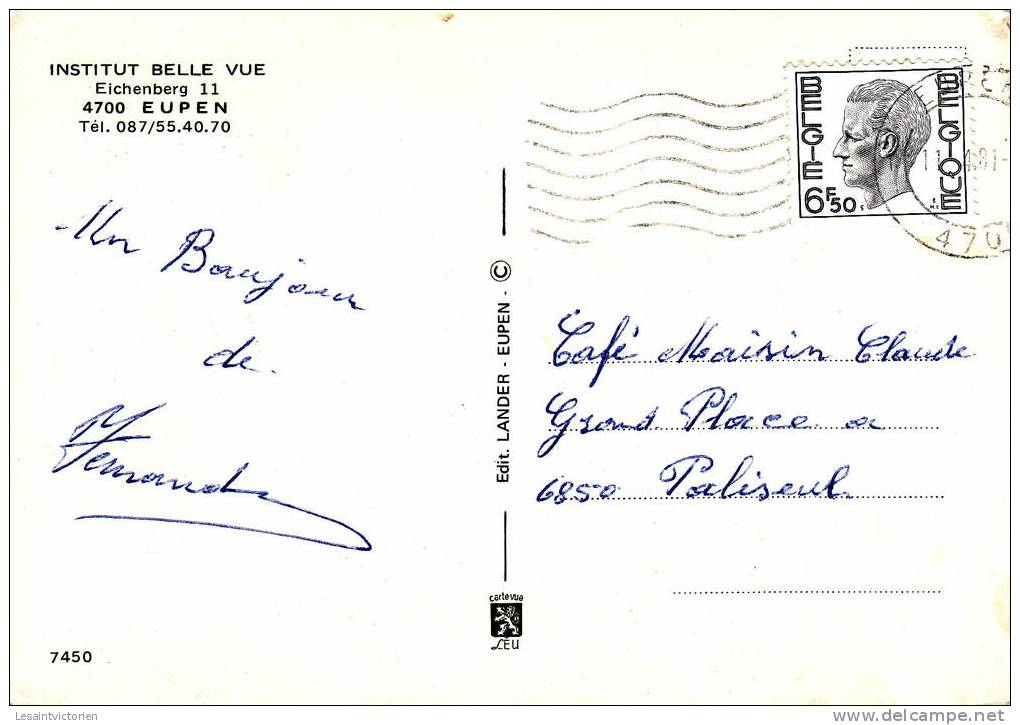 INSTITUT BELLE VUE
Eichenberg 11
4700 EUPEN
Tél. 087/55.40.70
Un Bonjour
de
Fernande
7450
Edit. LANDER - EUPEN - ©
carte vue
LEU
BELGIE
BELGIQUE
6F50
11
470
Café Maisin Claude
Grand Place a
6850 Paliseul
Lesaintvictorien
www.delcampe.net